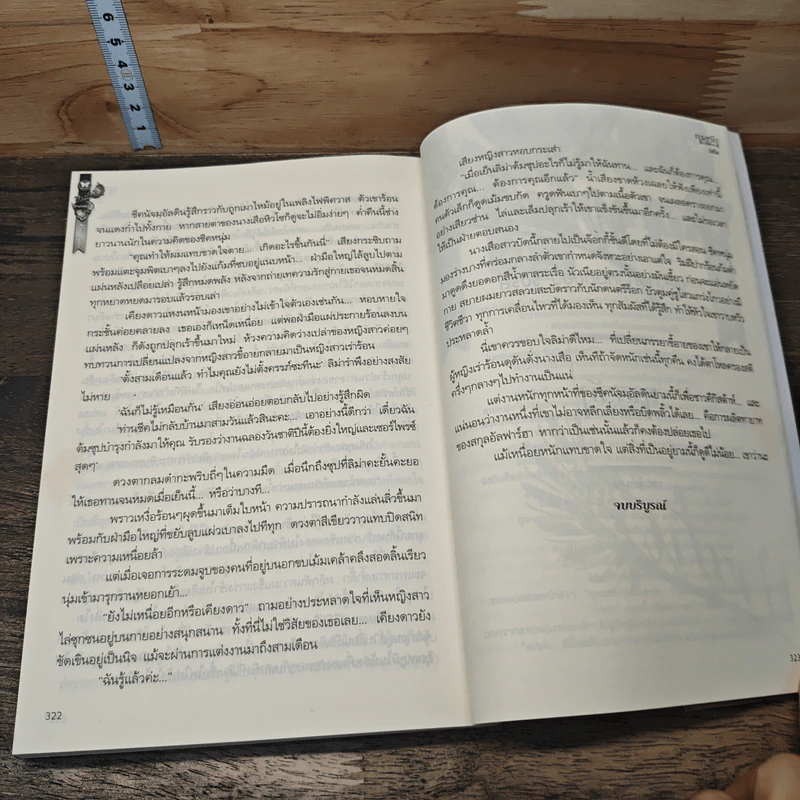 6
5
4
3
2
1
ชีคนัจมุอัลดินรู้สึกราวกับถูกเผาไหม้อยู่ในเพลิงไฟพิศวาส ตัวเขาร้อน
จนแดงก่ำไปทั้งกาย หากสายตาของนางเสือหิวโซก็ดูจะไม่อิ่มง่ายๆ ค่ำคืนนี้ช่าง
ยาวนานนักในความคิดของชีคหนุ่ม
"คุณทำให้ผมแทบขาดใจตาย... เกิดอะไรขึ้นกันนี่" เสียงกระซิบถาม
พร้อมแตะจุมพิตเบาๆลงไปยังแก้มที่ซบอยู่แนบหน้า... ฝ่ามือใหญ่ไล้ลูบไปตาม
แผ่นหลังเปลือยเปล่า รู้สึกหมดพลัง หลังจากถ่ายเทความรักสู่กายเธอจนหมดสิ้น
ทุกหยาดหยดมารอบแล้วรอบเล่า
เคียงดาวแหงนหน้ามองเขาอย่างไม่เข้าใจตัวเองเช่นกัน... หอบหายใจ
กระชั้นค่อยคลายลง เธอเองก็เหน็ดเหนื่อย แต่พอฝ่ามือแผ่ประกายร้อนลงบน
แผ่นหลัง ก็ดั่งถูกปลุกเร้าขึ้นมาใหม่ ห้วงความคิดว่างเปล่าของหญิงสาวค่อยๆ
ทบทวนการเปลี่ยนแปลงจากหญิงสาวขี้อายกลายมาเป็นหญิงสาวเร่าร้อน
'ตั้งสามเดือนแล้ว ทำไมคุณยังไม่ตั้งครรภ์ซะทีนะ' ลิม่ารำพึงอย่างสงสัย
ไม่หาย
'ฉันก็ไม่รู้เหมือนกัน' เสียงอ่อนอ่อยตอบกลับไปอย่างรู้สึกผิด
'ท่านชีคไม่กลับบ้านมาสามวันแล้วสินะคะ... เอาอย่างนี้ดีกว่า เดี๋ยวฉัน
ต้มซุปบำรุงกำลังมาให้คุณ รับรองว่างานฉลองวันชาติปีนี้ต้องยิ่งใหญ่และเซอร์ไพรซ์
สุดๆ'
ดวงตากลมดำกะพริบถี่ๆในความมืด เมื่อนึกถึงซุปที่ลิม่าคะยั้นคะยอ
ให้เธอทานจนหมดเมื่อเย็นนี้... หรือว่าบางที...
พราวเหงื่อร้อนๆผุดขึ้นมาเต็มใบหน้า ความปรารถนากำลังแล่นลิ่วขึ้นมา
พร้อมกับฝ่ามือใหญ่ที่ขยับลูบแผ่วเบาลงไปทีทุก ดวงตาสีเขียววาวแทบปิดสนิท
เพราะความเหนื่อยล้า
แต่เมื่อเจอการระดมจูบของคนที่อยู่บนอกขบเม้มเคล้าคลึงสอดลิ้นเรียว
นุ่มเข้ามารุกรานหยอกเย้า...
"ยังไม่เหนื่อยอีกหรือเคียงดาว" ถามอย่างประหลาดใจที่เห็นหญิงสาว
ไล่ซุกซนอยู่บนกายอย่างสนุกสนาน ทั้งที่นี่ไม่ใช่วิสัยของเธอเลย... เคียงดาวยัง
ขัดเขินอยู่เป็นนิจ แม้จะผ่านการแต่งงานมาถึงสามเดือน
"ฉันรู้แล้วค่ะ..."
322
เสียงหญิงสาวหอบกระเส่า
"เมื่อเย็นลิม่าต้มซุปอะไรก็ไม่รู้มาให้ฉันทาน... และฉันก็ต้องการคุณ...
ต้องการคุณ... ต้องการคุณอีกแล้ว" น้ำเสียงขาดห้วงเฉลยให้ฟังเพียงเท่านี้
คนตัวเล็กก็ดูดเม้มขบกัด ครูดฟันเบาๆไปตามเนื้อตัวเขา จนเผลอครางออกมา
อย่างเสียวซ่าน ไล่และเล็มปลุกเร้าให้เขาแข็งขันขึ้นมาอีกครั้ง... และไม่รอเวลา
ให้เป็นฝ่ายตอบสนอง
นางเสือสาวบัดนี้กลายไปเป็นจ๊อกกี้ชั้นดีโดยที่ไม่ต้องมีใครสอน ชีคหนุ่ม
มองร่างบางที่คร่อมกลางลำตัวเขากำหนดจังหวะอย่างเอาแต่ใจ
กาย สยายผมยาวสลวยสะบัดราวกับนักดนตรีร็อก
ชีวิตชีวา ทุกการเคลื่อนไหวที่ได้มองเห็น ทุกสัมผัสที่ได้รู้สึก ทำให้หัวใจเขาวาบหวิว
ประหลาดล้ำ
นี่เขาควรขอบใจลิม่าดีไหม... ที่เปลี่ยนภรรยาขี้อายของเขาให้กลายเป็น
ผู้หญิงเร่าร้อนดุดันดั่งนางเสือ เห็นทีถ้าจัดหนักเช่นนี้ทุกคืน คงได้ตาโหลครองสติ
ครึ่งๆกลางๆไปทำงานเป็นแน่
แต่งานหนักทุกหน้าที่ของชีคนัจมุอัลดินยามนี้ก็เพื่อชาวดีกิสต้าห์... และ
แน่นอนว่างานหนึ่งที่เขาไม่อาจหลีกเลี่ยงหรือปัดพลิ้วได้เลย... คือการผลิตทายาท
ของสกุลอัลฟาร์ฮา หากว่าเป็นเช่นนั้นแล้วก็คงต้องปล่อยเธอไป
แม้เหนื่อยหนักแทบขาดใจ แต่สิ่งที่เป็นอยู่ยามนี้ก็ดูดีไม่น้อย... เขาว่านะ
จบบริบูรณ์
323